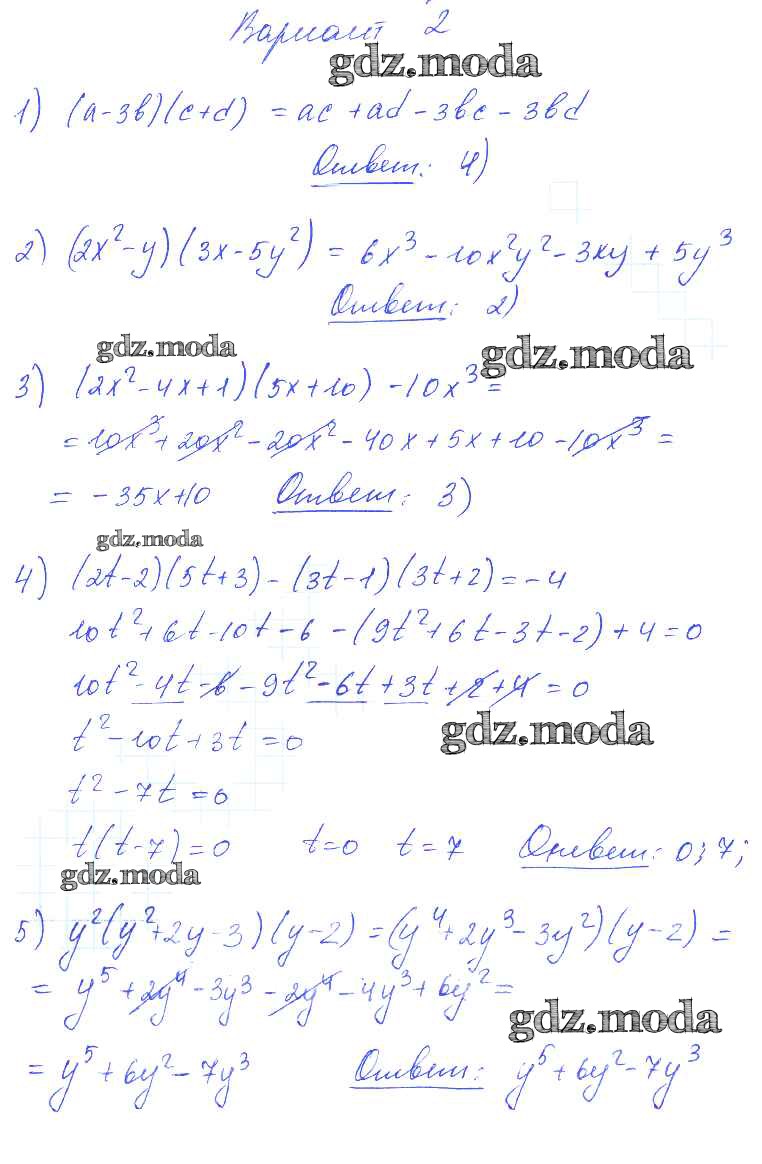 Вариант 2
gdz.moda
1) (a-3b)(c+d) = ac + ad - 3bc - 3bd
Ответ: 4)
2) (2x² - y)(3x - 5y²) = 6x³ - 10x²y² - 3xy + 5y³
Ответ: 2)
gdz.moda gdz.moda
3) (2x² - 4x + 1)(5x + 10) - 10x³ =
= 10x³ + 20x² - 20x² - 40x + 5x + 10 - 10x³ =
= -35x + 10 Ответ: 3)
gdz.moda
4) (2t-2)(5t+3) - (3t-1)(3t+2) = -4
10t² + 6t - 10t - 6 - (9t² + 6t - 3t - 2) + 4 = 0
10t² - 4t - 6 - 9t² - 6t + 3t + 2 + 4 = 0
t² - 10t + 3t = 0
gdz.moda
t² - 7t = 0
t(t-7) = 0 t = 0 t = 7 Ответ: 0; 7;
gdz.moda
5) y²(y² + 2y - 3)(y - 2) = (y⁴ + 2y³ - 3y²)(y - 2) =
= y⁵ + 2y⁴ - 3y³ - 2y⁴ - 4y³ + 6y² =
gdz.moda
= y⁵ + 6y² - 7y³ Ответ: y⁵ + 6y² - 7y³